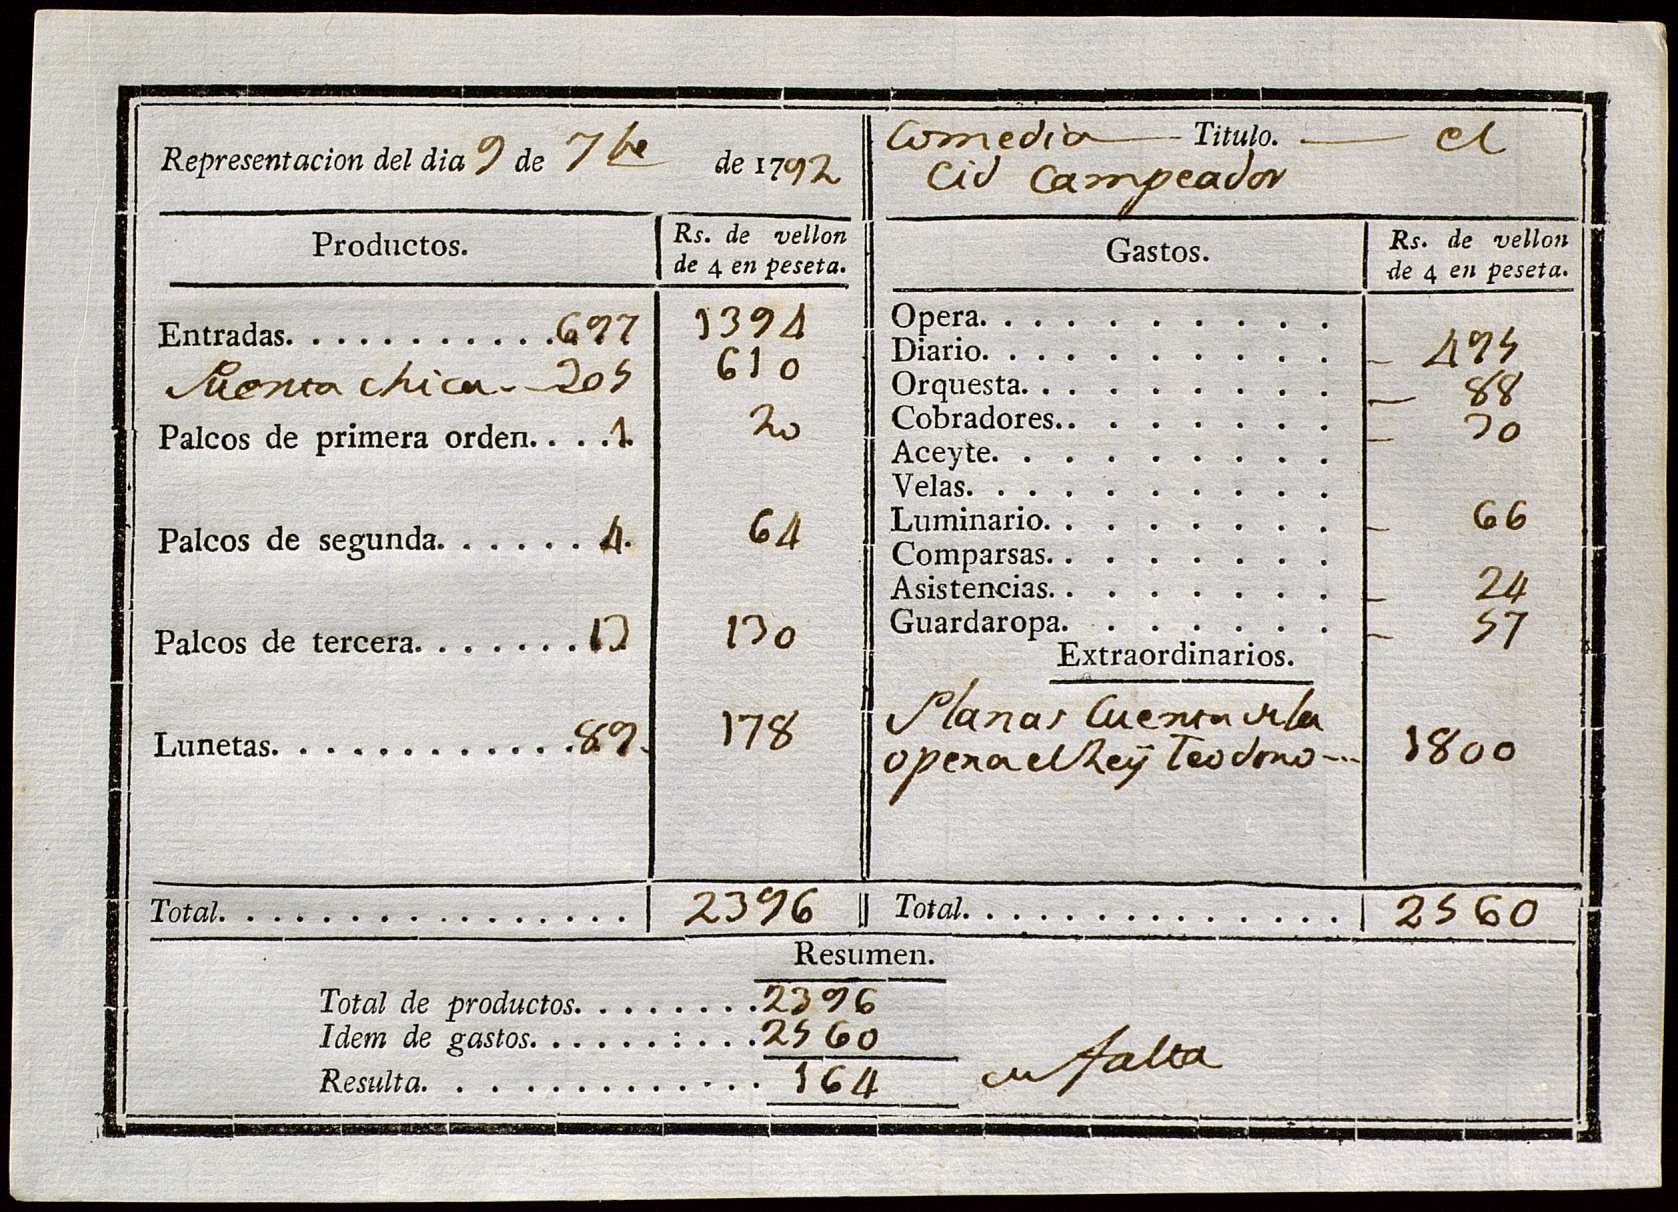 Representacion del dia 9 de 7bre de 1792
Comedia — Titulo. — el
Cid Campeador
Productos. Rs. de vellon de 4 en peseta.
Entradas. . . . . . . . . . . . 697 1394
Puerta chica - 305 610
Palcos de primera orden. . . . 1. 20
Palcos de segunda. . . . . . . 4. 64
Palcos de tercera. . . . . . . 13 130
Lunetas. . . . . . . . . . . . . 89. 178
Total. . . . . . . . . . . . . . . . . 2396
Gastos. Rs. de vellon de 4 en peseta.
Opera. . . . . . . . . .
Diario. . . . . . . . . . - 495
Orquesta. . . . . . . . . - 88
Cobradores. . . . . . . . - 30
Aceyte. . . . . . . . . .
Velas. . . . . . . . . .
Luminario. . . . . . . . - 66
Comparsas. . . . . . . .
Asistencias. . . . . . . . - 24
Guardaropa. . . . . . . - 57
Extraordinarios.
Planas Cuenta de la
opera el Rey Teodoro --- 1800
Total. . . . . . . . . . . . . . . 2560
Resumen.
Total de productos. . . . . . . . 2396
Idem de gastos. . . . . . : . . . 2560
Resulta. . . . . . . . . . . . . . 164 en falta